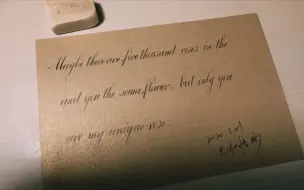 Maybe there are five thousand roses in the
and you the same flower, but only you
are my unique rose.